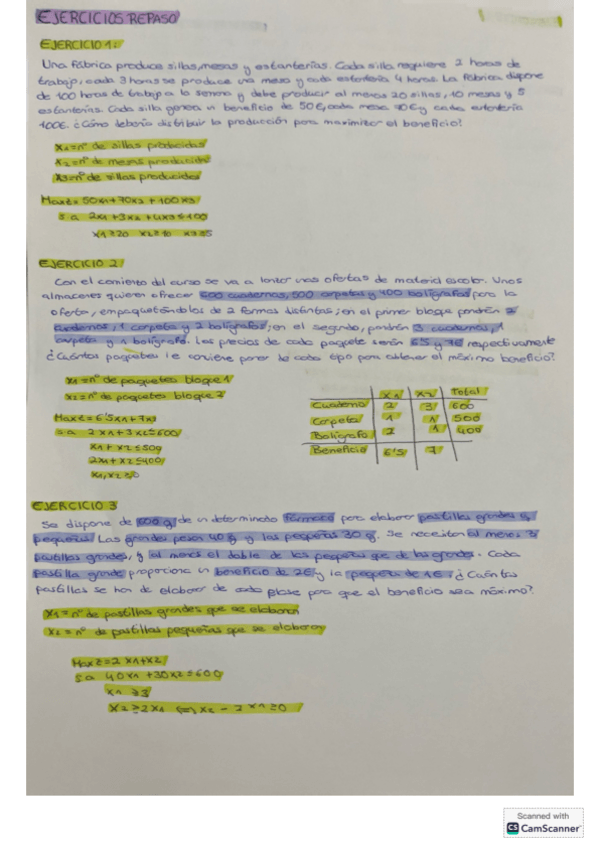 EJERCICIOS REPASO
EJERCICIO 1:
Una fábrica produce sillas, mesas y estanterías. Cada silla requiere 2 horas de
trabajo, cada 3 horas se produce una mesa y cada estantería 4 horas. La fábrica dispone
de 100 horas de trabajo a la semana y debe producir al menos 20 sillas, 10 mesas y 5
estanterías. Cada silla genera un beneficio de 50€, cada mesa 70€ y cada estantería
100€. ¿Cómo debería distribuir la producción para maximizar el beneficio?
x1 = nº de sillas producidas
x2 = nº de mesas producidas
x3 = nº de sillas producidas
Max z = 50x1 + 70x2 + 100x3
s.a 2x1 + 3x2 + 4x3 ≤ 100
x1 ≥ 20 x2 ≥ 10 x3 ≥ 5
EJERCICIO 2
Con el comienzo del curso se va a lanzar unas ofertas de material escolar. Unos
almacenes quieren ofrecer 600 cuadernos, 500 carpetas y 400 bolígrafos para la
oferta, empaquetándolos de 2 formas distintas; en el primer bloque pondrán 2
cuadernos, 1 carpeta y 2 bolígrafos; en el segundo, pondrán 3 cuadernos, 1
carpeta y 1 bolígrafo. Los precios de cada paquete serán 6'5 y 7€ respectivamente
¿Cuántos paquetes le conviene poner de cada tipo para obtener el máximo beneficio?
x1 = nº de paquetes bloque 1
x2 = nº de paquetes bloque 2
Max z = 6'5x1 + 7x2
s.a 2x1 + 3x2 ≤ 600
x1 + x2 ≤ 500
2x1 + x2 ≤ 400
x1, x2 ≥ 0
x1 x2 Total
Cuaderno 2 3 600
Carpeta 1 1 500
Bolígrafo 2 1 400
Beneficio 6'5 7
EJERCICIO 3
Se dispone de 600 g de un determinado fármaco para elaborar pastillas grandes y
pequeñas. Las grandes pesan 40 g y las pequeñas 30 g. Se necesitan al menos 3
pastillas grandes, y al menos el doble de las pequeñas que de las grandes. Cada
pastilla grande proporciona un beneficio de 2€ y la pequeña de 1€. ¿Cuántas
pastillas se han de elaborar de cada clase para que el beneficio sea máximo?
x1 = nº de pastillas grandes que se elaboran
x2 = nº de pastillas pequeñas que se elaboran
Max z = 2x1 + x2
s.a 40x1 + 30x2 ≤ 600
x1 ≥ 3
x2 ≥ 2x1 ⇔ x2 - 2x1 ≥ 0
Scanned with
CS CamScanner